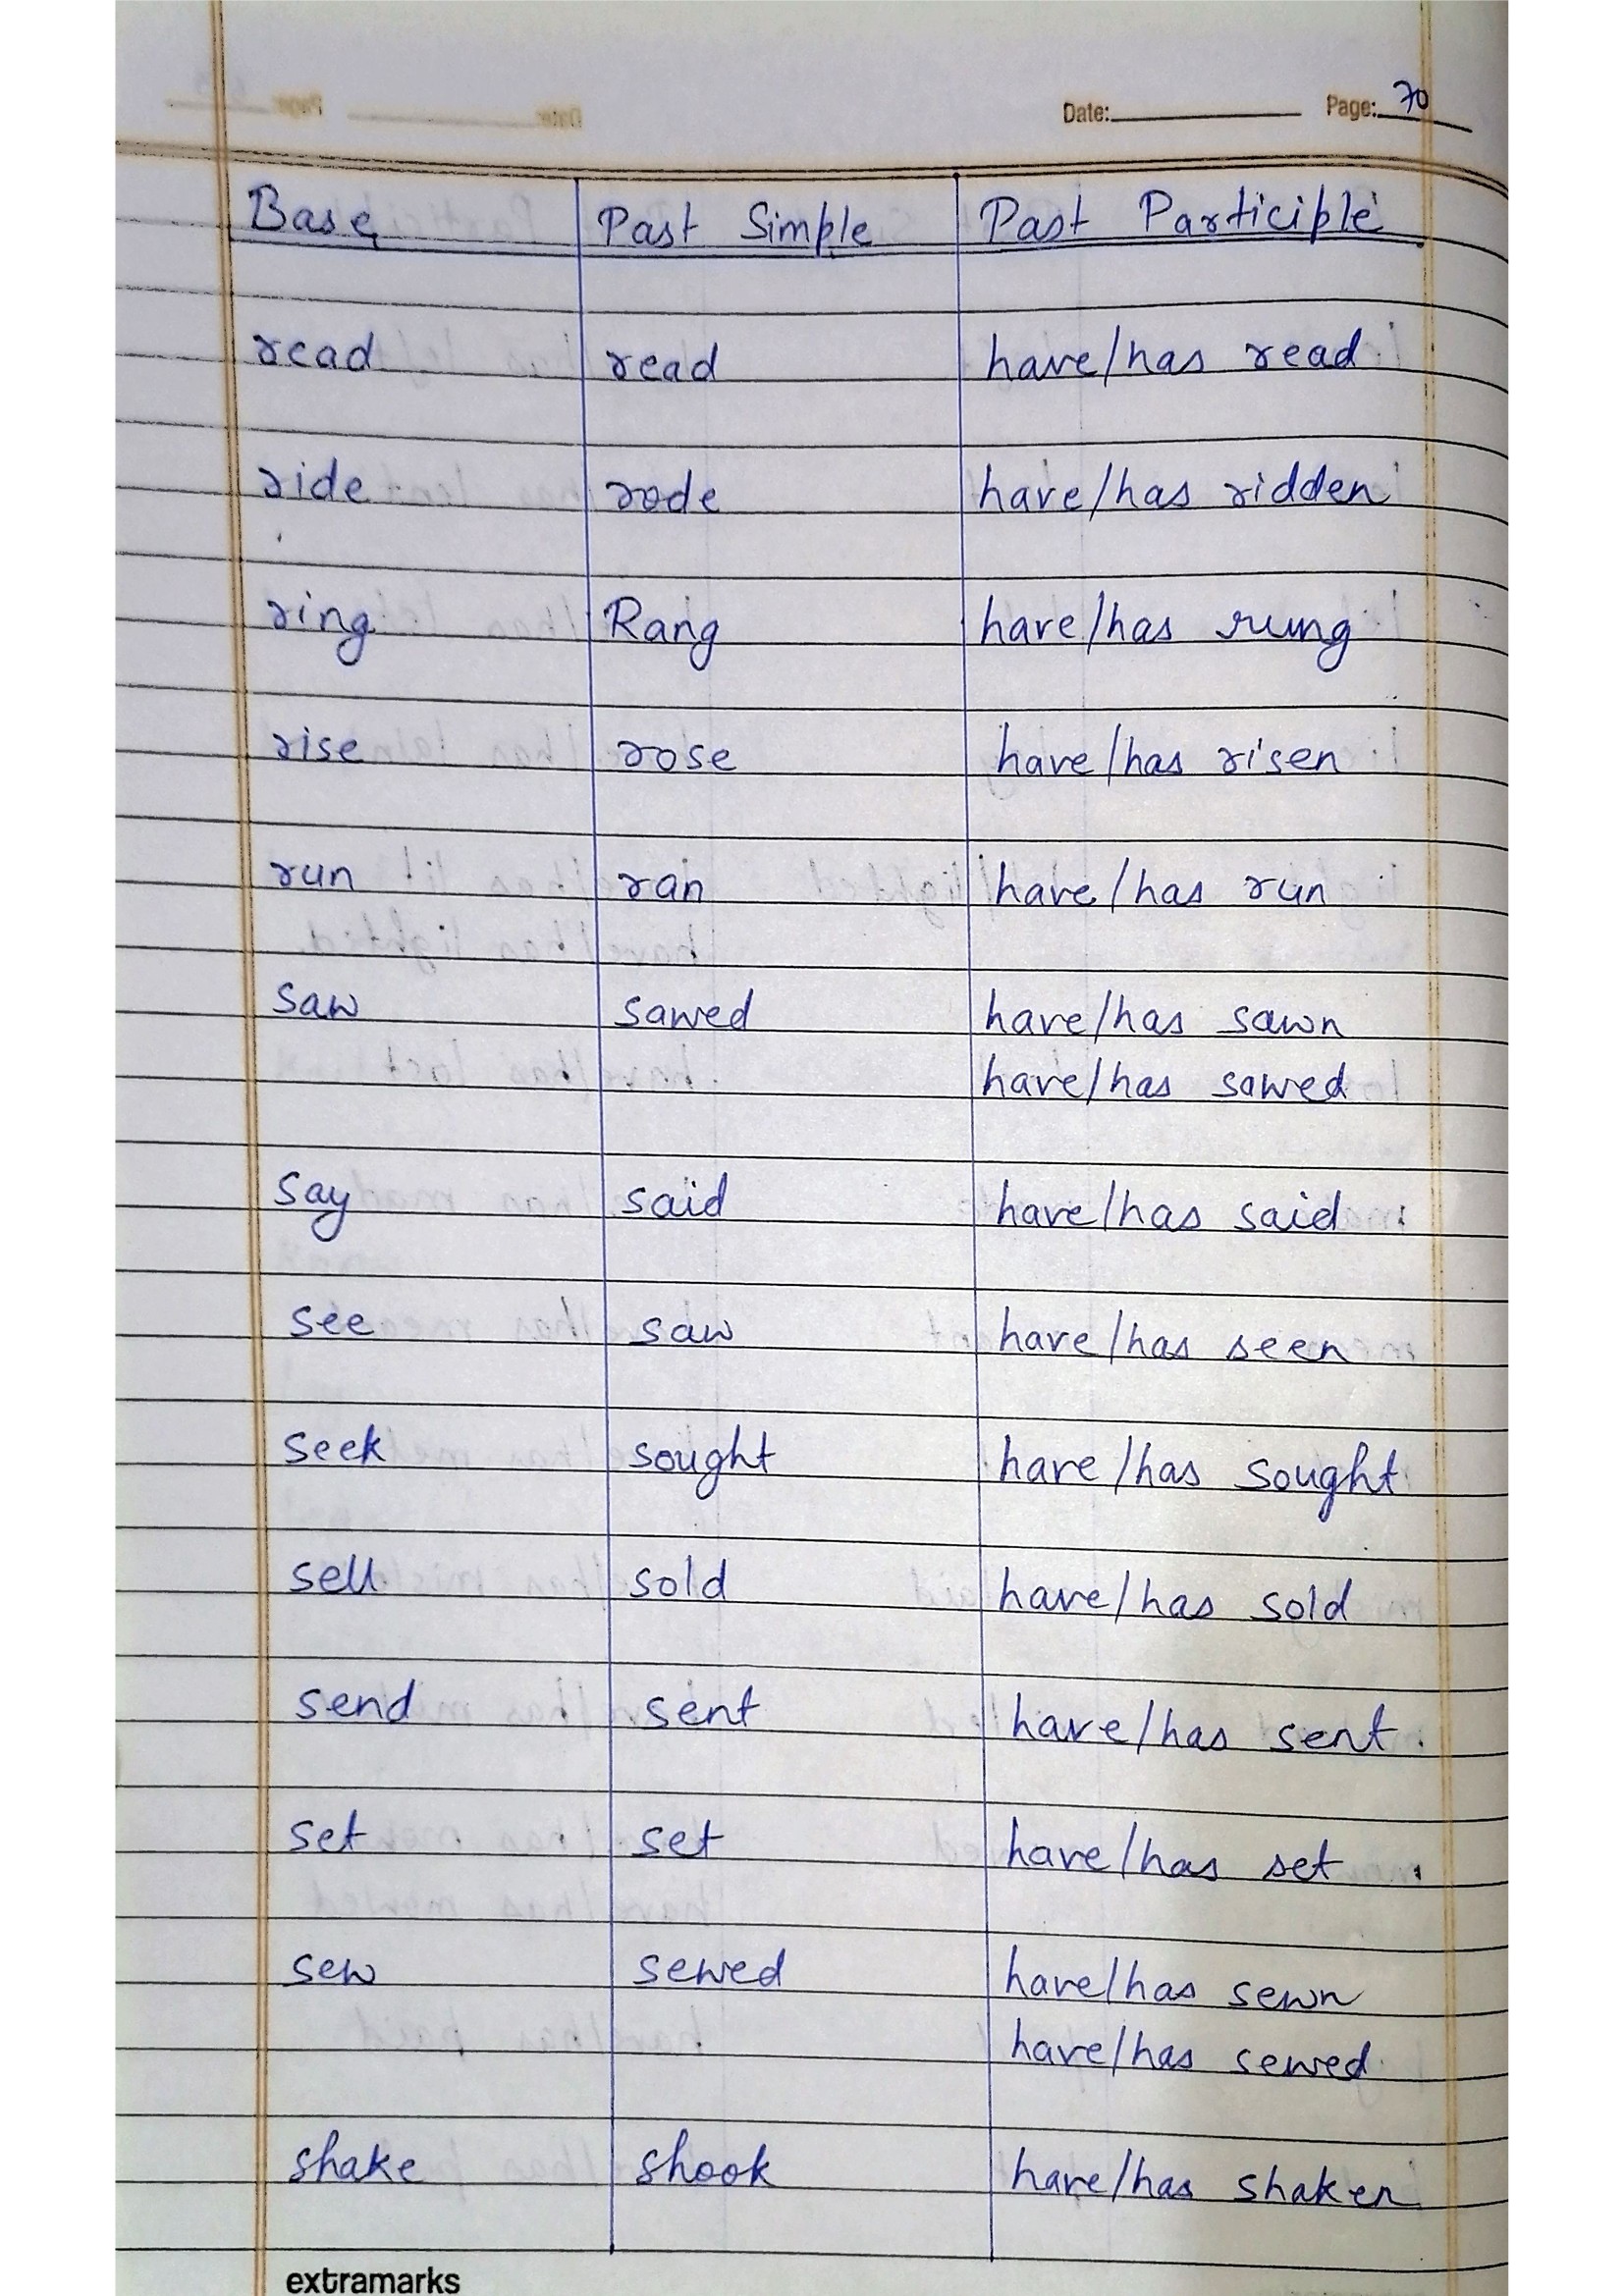 Date: Page: 70
Base Past Simple Past Participle
read read have/has read
ride rode have/has ridden
ring Rang have/has rung
rise rose have/has risen
run ran have/has run
saw sawed have/has sawn
have/has sawed
say said have/has said
see saw have/has seen
seek sought have/has sought
sell sold have/has sold
send sent have/has sent
set set have/has set
sew sewed have/has sewn
have/has sewed
shake shook have/has shaken
extramarks